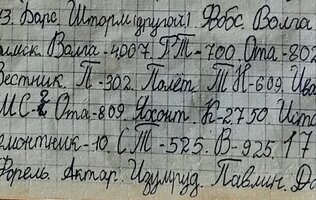 13. Барс. Шторм (другой). Явбс. Волга
Волга - 4007. ГТ - 700 Ота - 802
Вестник. П - 302. Полёт. ТН - 609. Ива
МС - 2 Ота - 809. Яхонт. К - 2750 Исто
емонтник - 10. СТ - 525. В - 925. 17
Форель. Актар. Изумруд. Павлин. До